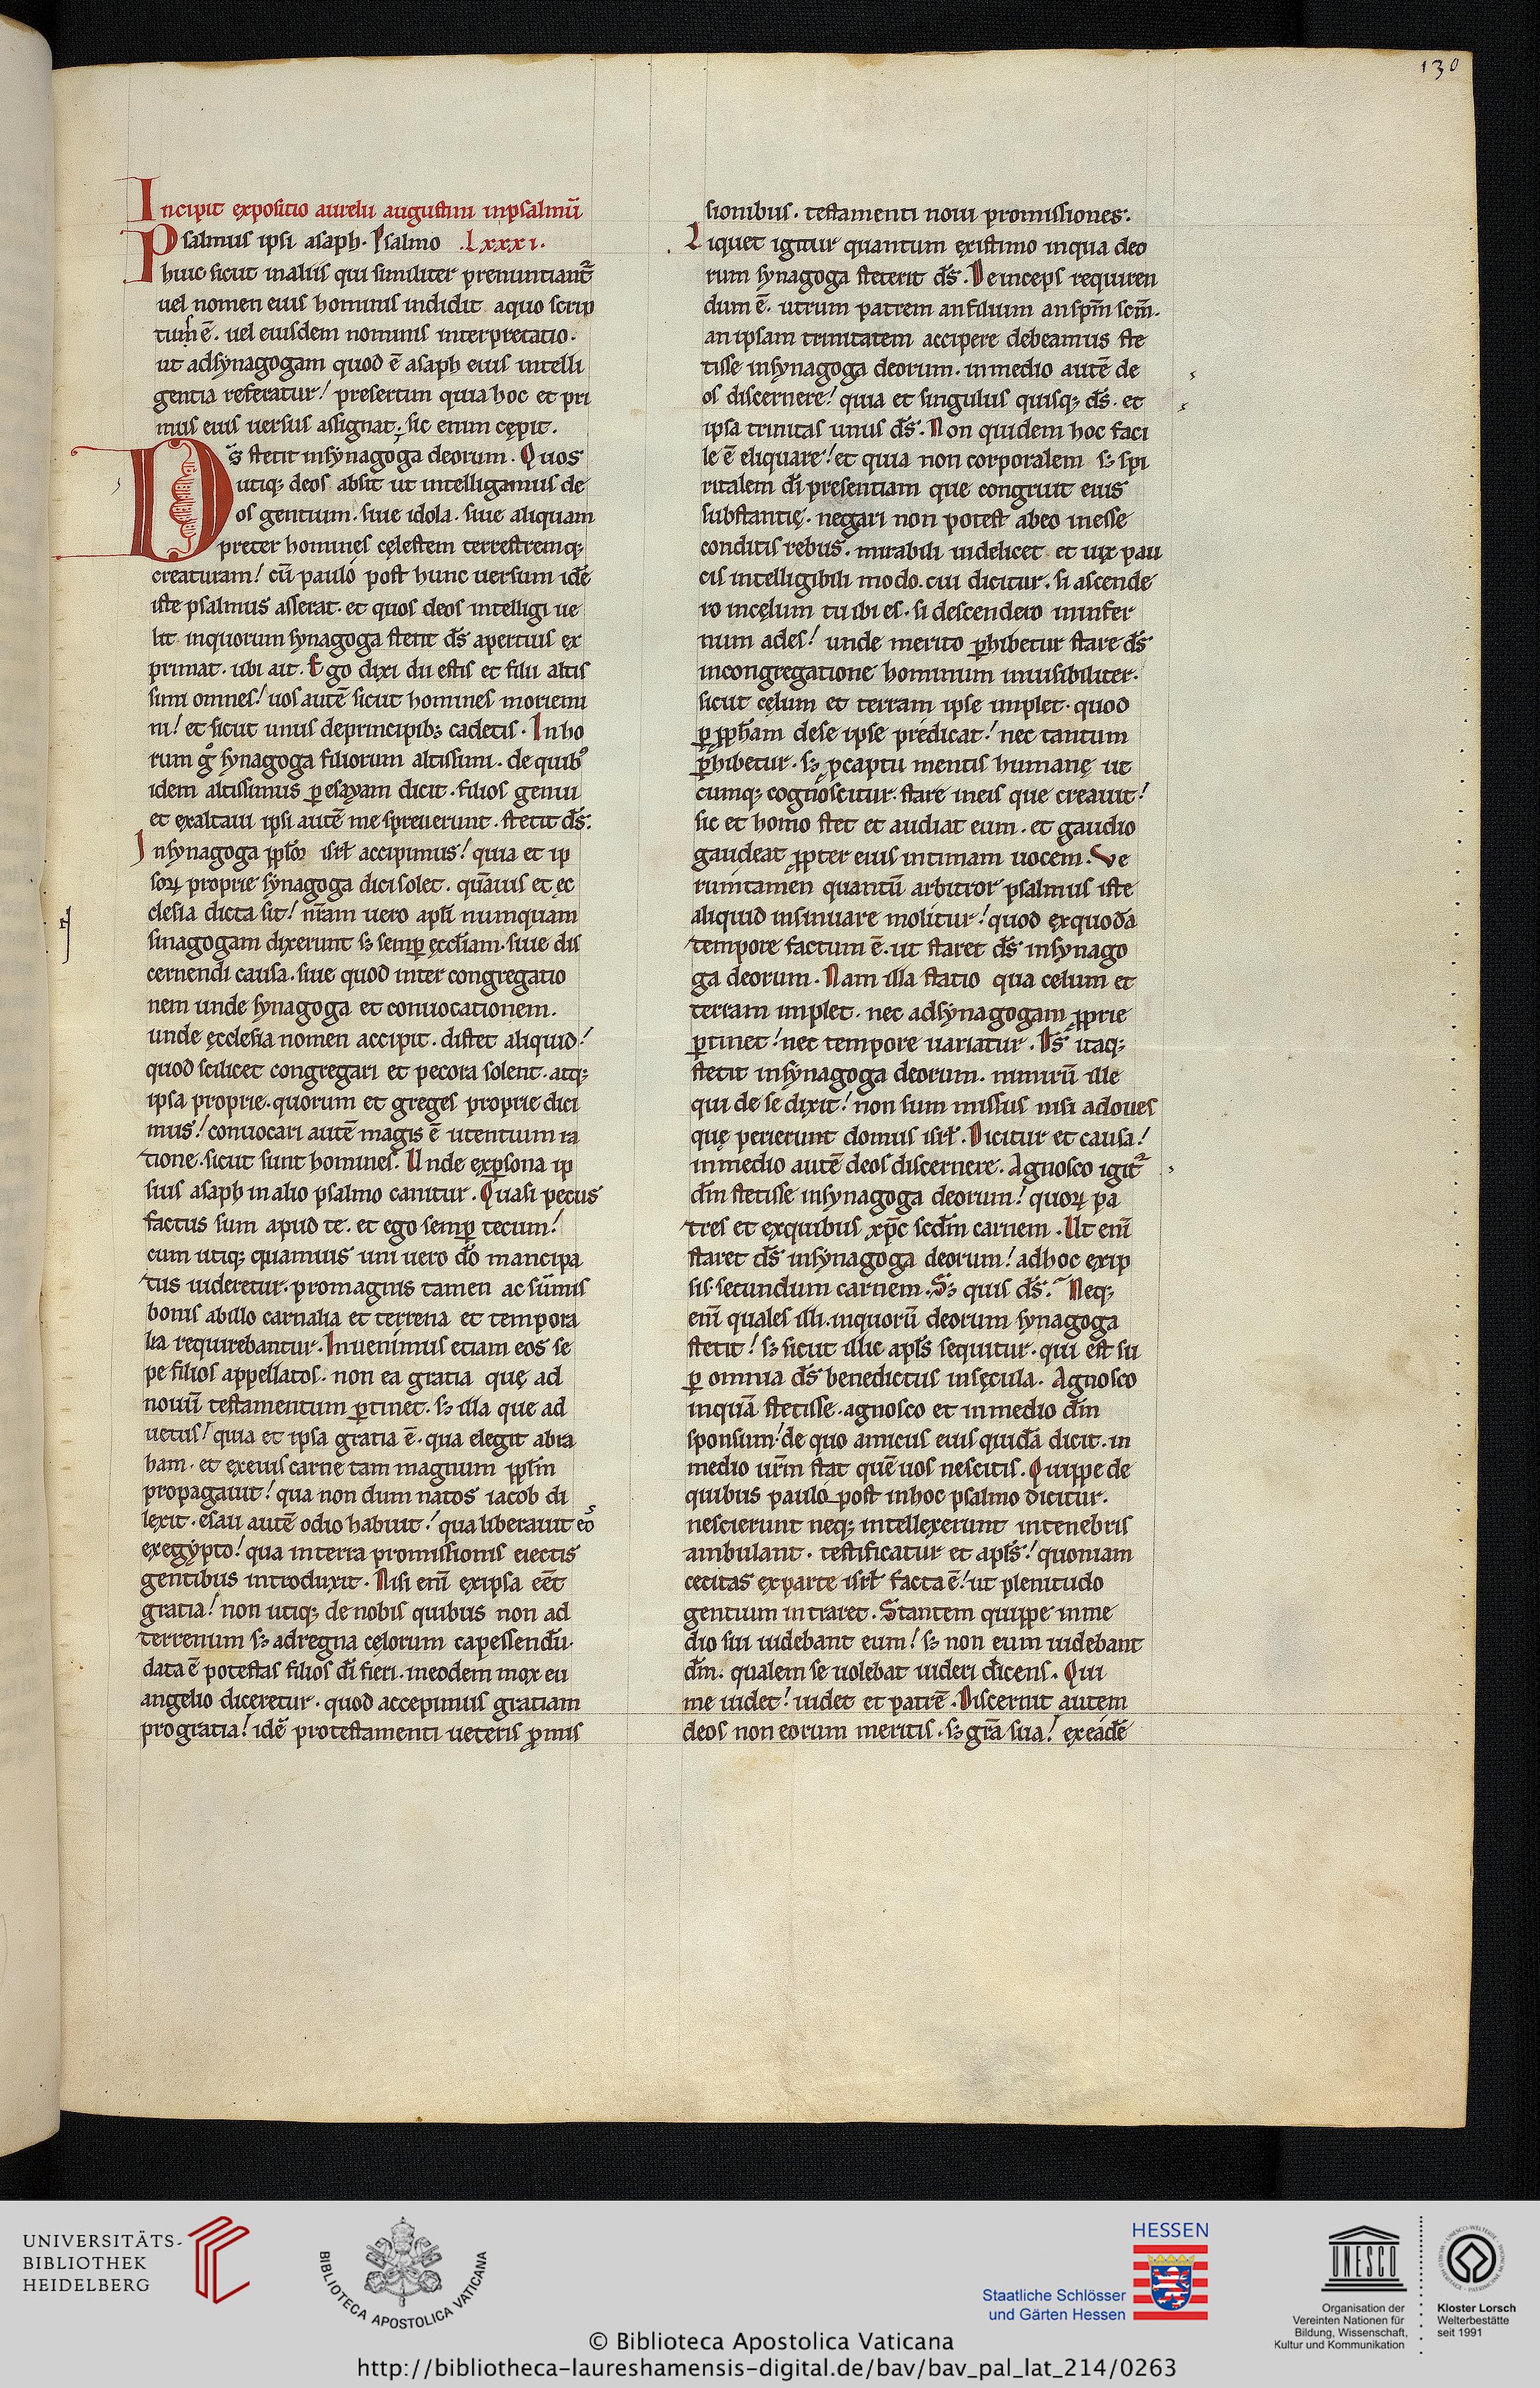 130
Incipit expositio aurelii augustini inpsalmū
Psalmus ipsi asaph. Psalmo .Lxxxi.
huic sicut inaliis qui similiter prenuntiant᷑
uel nomen eius hominis indidit aquo scrip
tum ē. uel eiusdem nominis interpretatio.
ut adsynagogam quod ē asaph eius intelli
gentia referatur! presertim quia hoc et pri
mus eius uersus assignat; sic enim cępit.
Ds̄ stetit insynagoga deorum. Quos
utiq; deos absit ut intelligamus de
os gentium. siue idola. siue aliquam
preter homines cęlestem terrestremq;
creaturam! cū paulo post hunc uersum idē
iste psalmus asserat. et quos deos intelligi ue
lit inquorum synagoga stetit ds̄ apertius ex
primat. ubi ait. Ego dixi dii estis et filii altis
simi omnes! uos autē sicut homines moriemi
ni! et sicut unus deprincipib; cadetis. Inho
rum gͦ synagoga filiorum altissimi. de quibꝰ
idem altissimus ꝑ esayam dicit. filios genui
et exaltaui ipsi autē me spreuerunt. stetit ds̄.
Insynagoga ppl̄oꝝ isrl̄ accipimus! quia et ip
soꝝ proprie synagoga dici solet. quāuis et ęc
clesia dicta sit! nr̄am uero apl̄i numquam
sinagogam dixerunt s; semꝑ ęccl̄iam. siue dis
cernendi causa. siue quod inter congregatio
nem unde synagoga et conuocationem.
unde ęcclesia nomen accipit. distet aliquid!
quod scilicet congregari et pecora solent. atq;
ipsa proprie. quorum et greges proprie dici
mus! conuocari autē magis ē utentium ra
tione. sicut sunt homines. Unde exꝑsona ip
sius asaph in alio psalmo canitur. Quasi pecus
factus sum apud te. et ego semꝑ tecum!
cum utiq; quamuis uni uero dō mancipa
tus uideretur. promagnis tamen ac sūmis
bonis abillo carnalia et terrena et tempora
lia requirebantur. Inuenimus etiam eos se
pe filios appellatos. non ea gratia quę ad
nouū testamentum ꝑtinet. s; illa que ad
uetus! quia et ipsa gratia ē. qua elegit abra
ham. et exeius carne tam magnum ppl̄m
propagauit! qua non dum natos iacob di
lexit. esau autē odio habuit! qua liberauit eōs
exegypto! qua interra promissionis eiectis
gentibus introduxit. Nisi enī exipsa eēt
gratia! non utiq; de nobis quibus non ad
terrenum s; adregna cęlorum capessendū.
data ē potestas filios dī fieri. ineodem mox eu
angelio diceretur. quod accepimus gratiam
progratia! idē protestamenti ueteris ꝓmis
sionibus. testamenti noui promissiones.
Liquet igitur quantum existimo inqua deo
rum synagoga steterit ds̄. Deinceps requiren
dum ē. utrum patrem anfilium anspm̄ scm̄.
an ipsam trinitatem accipere debeamus ste
tisse insynagoga deorum. inmedio autē de
os discernere! quia et singulus quisq; ds̄. et
ipsa trinitas unus ds̄. Non quidem hoc faci
le ē eliquare! et quia non corporalem s; spi
ritalem dī presentiam que congruit eius
substantię. negari non potest abeo inesse
conditis rebus. mirabili uidelicet et uix pau
cis intelligibili modo. cui dicitur. si ascende
ro incęlum tu ibi es. si descendero ininfer
num ades! unde merito ꝑhibetur stare ds̄
incongregatione hominum inuisibiliter.
sicut cęlum et terram ipse implet. quod
ꝑ pph̄am dese ipse predicat! nec tantum
ꝑhibetur. s; ꝓcaptu mentis humanę ut
cumq; cognoscitur. stare ineis que creauit!
sic et homo stet et audiat eum. et gaudio
gaudeat ꝓpter eius intimam uocem. Ve
rumtamen quantū arbitror psalmus iste
aliquid insinuare molitur! quod exquodā
tempore factum ē. ut staret ds̄ insynago
ga deorum. Nam illa statio qua celum et
terram implet. nec adsynagogam ꝓprie
ꝑtinet! nec tempore uariatur. Ds̄ itaq;
stetit insynagoga deorum. nimirū ille
qui de se dixit! non sum missus nisi adoues
quę perierunt domus isrl̄. Dicitur et causa!
inmedio autē deos discernere. Agnosco igit᷑
dm̄ stetisse insynagoga deorum! quoꝝ pa
tres et exquibus xp̄c scdm̄ carnem. Ut enī
staret ds̄ insynagoga deorum! adhoc exip
sis. secundum carnem. S; quis ds̄? Neq;
enī quales illi. inquorū deorum synagoga
stetit! s; sicut illic apl̄s sequitur. qui est su
ꝑ omnia ds̄ benedictus insęcula. Agnosco
inquā stetisse. agnosco et inmedio dm̄
sponsum! de quo amicus eius quidā dicit. in
medio ur̄m stat quē uos nescitis. Quippe de
quibus paulo post inhoc psalmo dicitur.
nescierunt neq; intellexerunt intenebris
ambulant. testificatur et apl̄s! quoniam
cecitas exparte isrl̄ facta ē! ut plenitudo
gentium intraret. Stantem quippe inme
dio sui uidebant eum! s; non eum uidebant
dm̄. qualem se uolebat uideri dicens. Qui
me uidet! uidet et patrē. Discernit autem
deos non eorum meritis. s; grā sua! exeadē
UNIVERSITÄTS-
BIBLIOTHEK
HEIDELBERG
BIBLIOTECA APOSTOLICA VATICANA
HESSEN
Staatliche Schlösser
und Gärten Hessen
UNESCO
Organisation der
Vereinten Nationen für
Bildung, Wissenschaft,
Kultur und Kommunikation
Kloster Lorsch
Welterbestätte
seit 1991
© Biblioteca Apostolica Vaticana
http://bibliotheca-laureshamensis-digital.de/bav/bav_pal_lat_214/0263